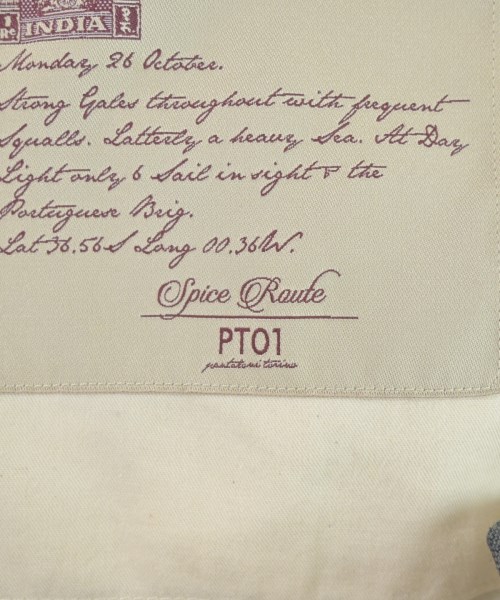 1 INDIA
Re
Monday 26 October.
Strong Gales throughout with frequent
Squalls. Latterly a heavy Sea. At Day
Light only 6 Sail in sight & the
Portuguese Brig.
Lat 36.56 S Long 00.36W.
Spice Route
PT01
pantaloni torino